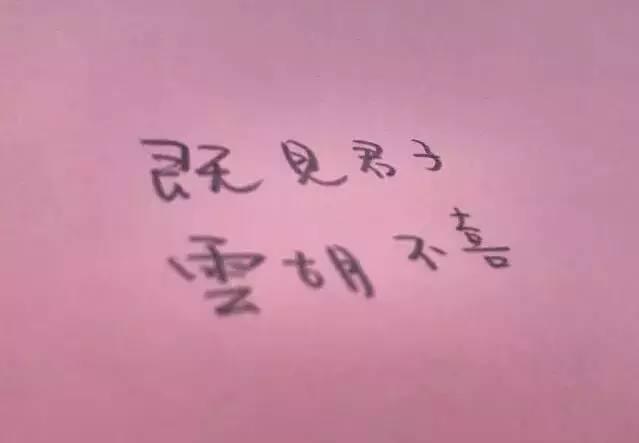 既见君子
雲胡不喜